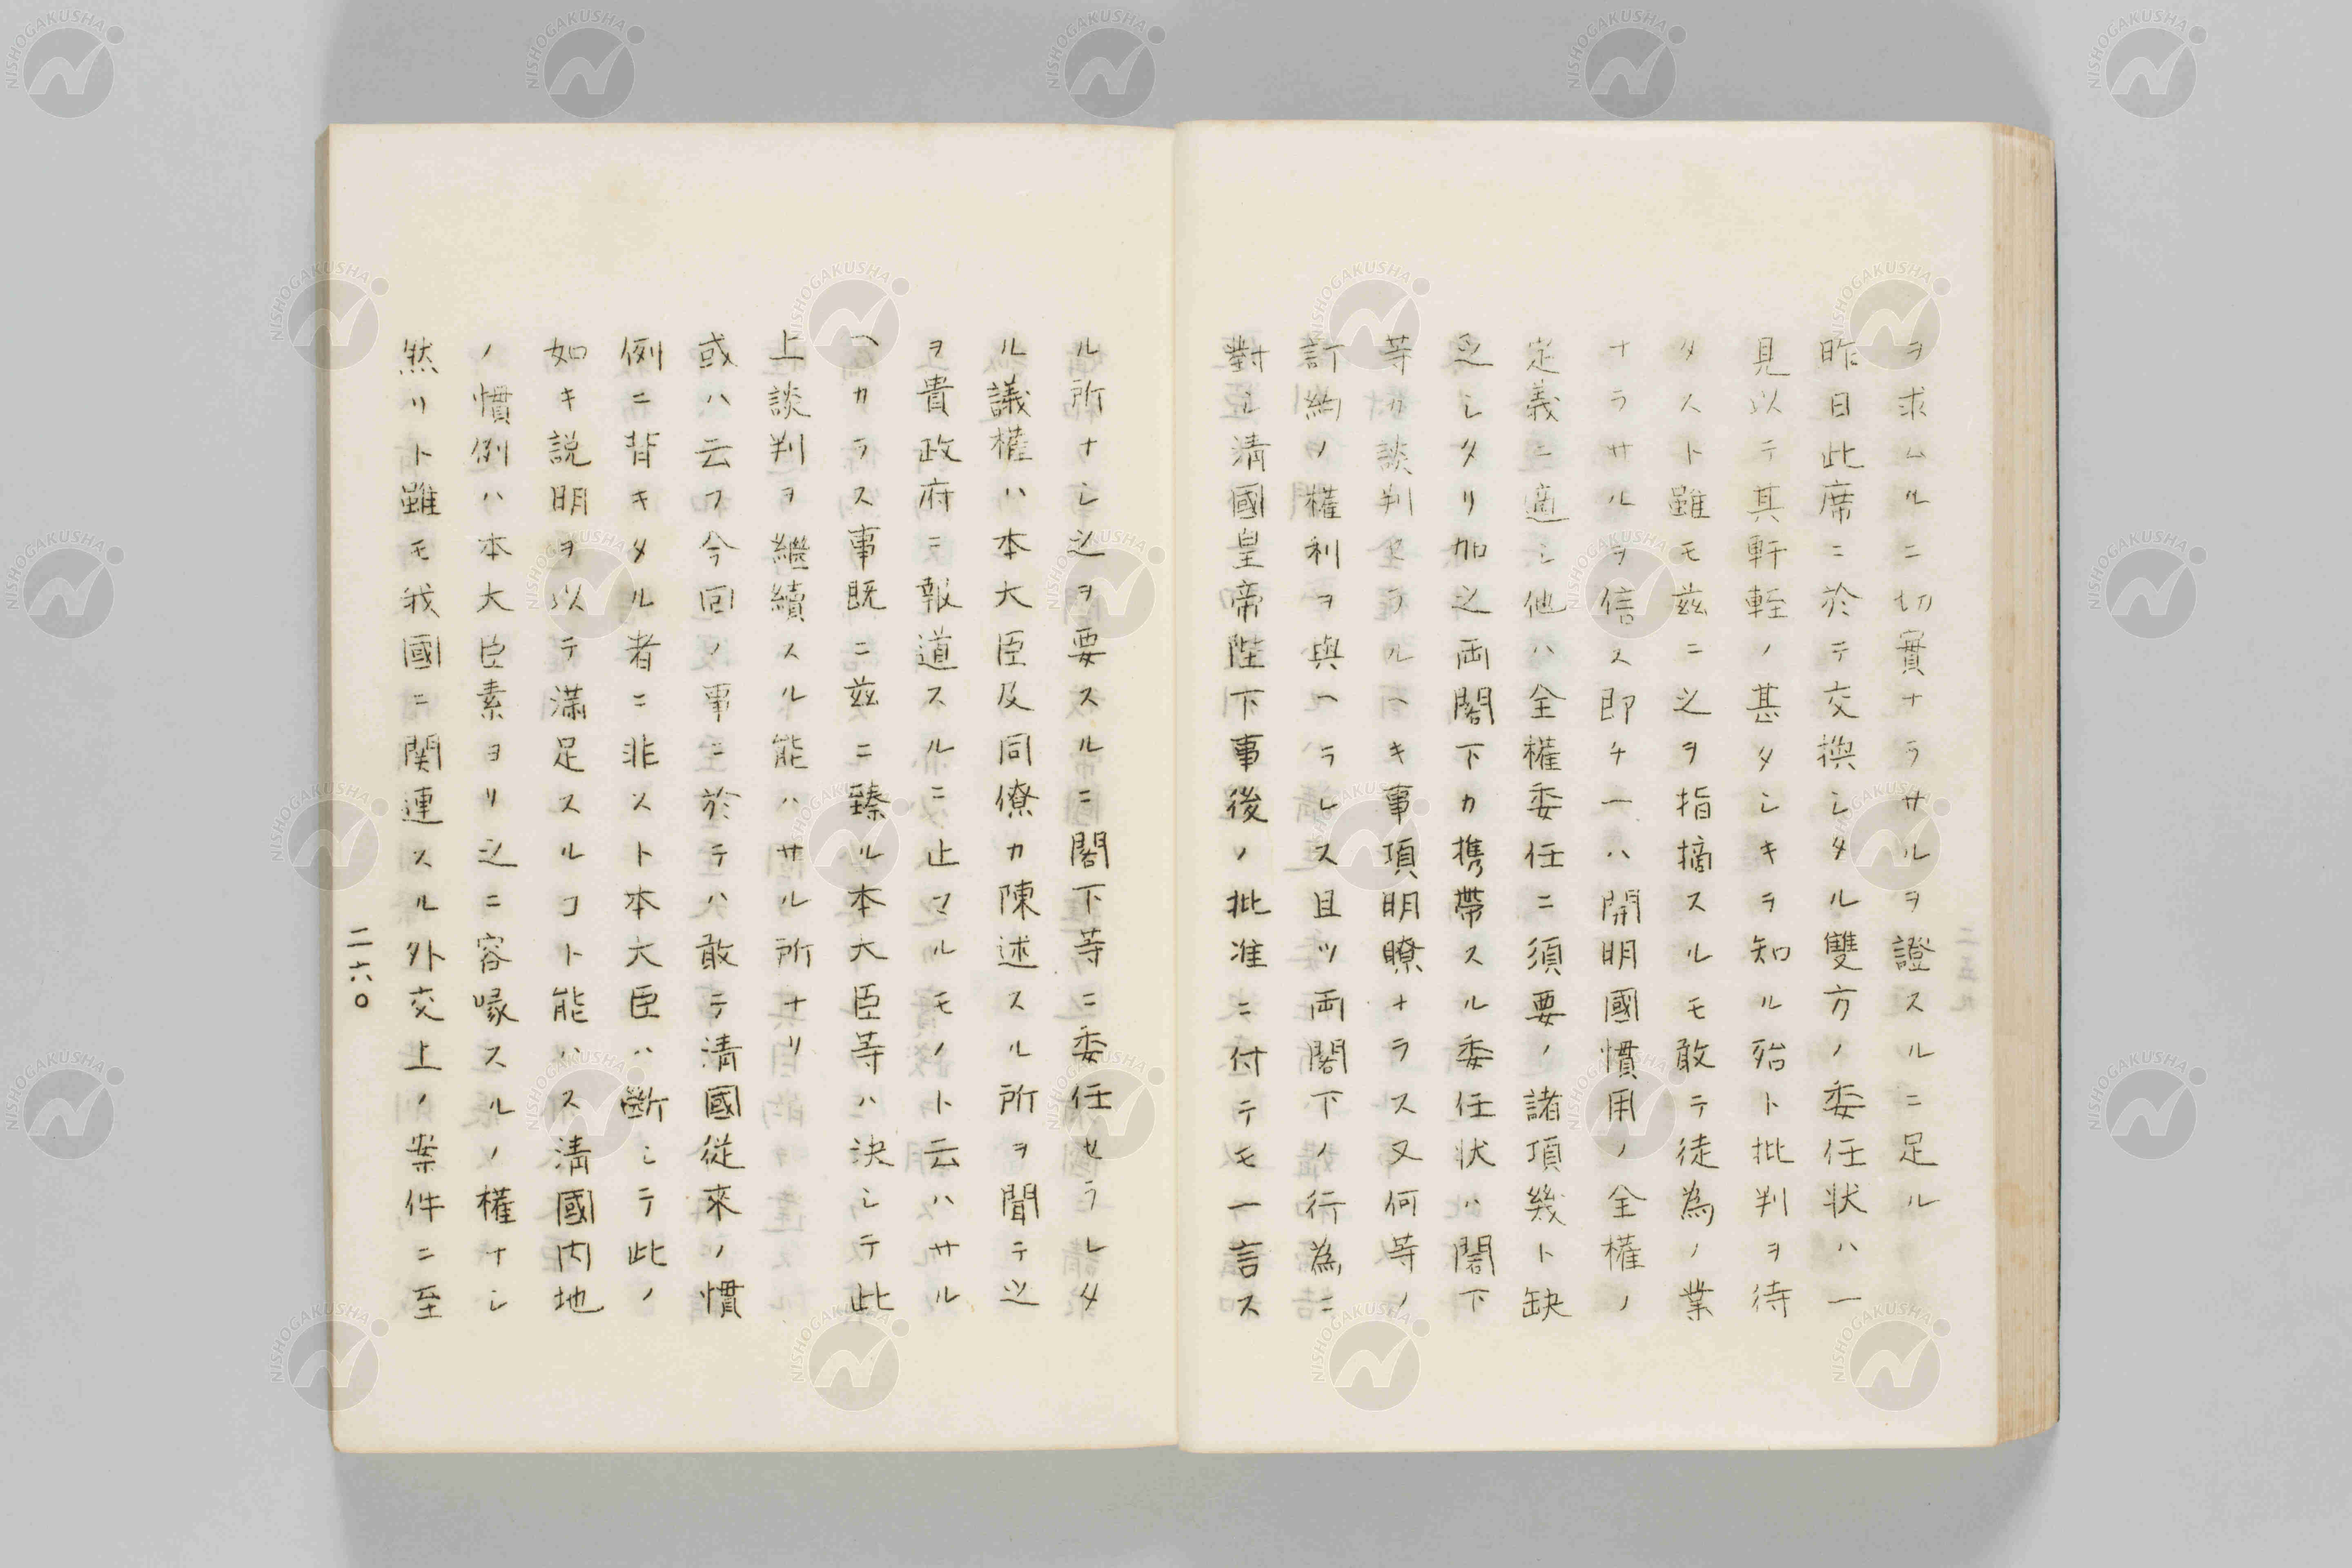 ヲ求ムルニ切實ナラサルヲ證スルニ足ル
昨日此席ニ於テ交換シタル雙方ノ委任状ハ一
見以テ其軒輊ノ甚タシキヲ知ル殆ト批判ヲ待
タスト雖モ茲ニ之ヲ指摘スルモ敢テ徒為ノ業
ナラサルヲ信ス即チ一ハ開明國慣用ノ全權ノ
定義ニ適シ他ハ全權委任ニ須要ノ諸項幾ト缺
乏シタリ加之両閣下カ携帶スル委任状ハ閣下
等カ談判セラルヘキ事項明瞭ナラス又何等ノ
訂約ノ權利ヲ與ヘラレス且ツ両閣下ノ行為ニ
對シ清國皇帝陛下事後ノ批准ニ付テモ一言ス
二五九
ル所ナシ之ヲ要スルニ閣下等ニ委任セラレタ
ル議權ハ本大臣及同僚カ陳述スル所ヲ聞テ之
ヲ貴政府ニ報道スルニ止マルモノト云ハサル
ヘカラス事既ニ茲ニ臻ル本大臣等ハ決シテ此
上談判ヲ繼續スル能ハサル所ナリ
或ハ云フ今回ノ事ニ於テハ敢テ清國從來ノ慣
例ニ背キタル者ニ非スト本大臣ハ斷シテ此ノ
如キ説明ヲ以テ滿足スルコト能ハス清國内地
ノ慣例ハ本大臣素ヨリ之ニ容喙スルノ權ナシ
然リト雖モ我國ニ関連スル外交上ノ案件ニ至
二六〇
NISHOGAKUSHA